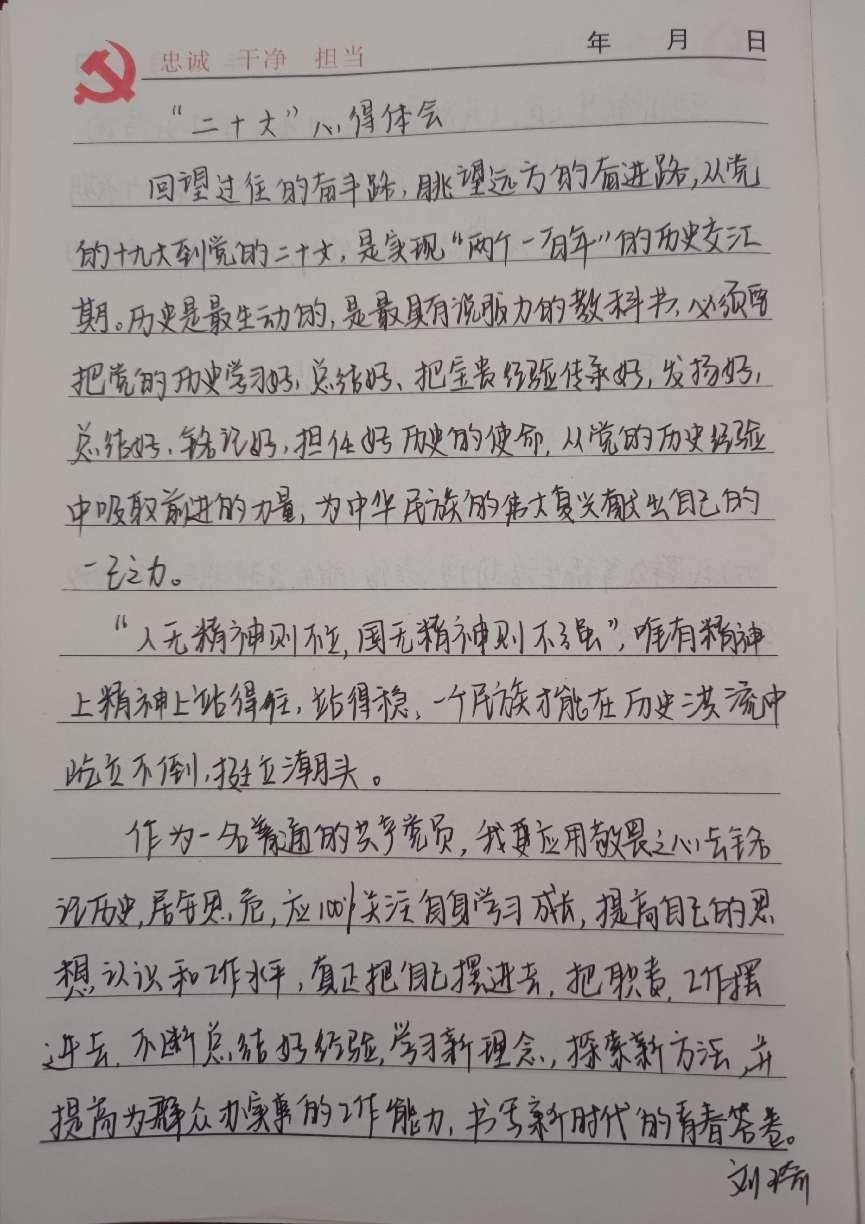 忠诚 干净 担当 年 月 日
“二十大”心得体会
回望过往的奋斗路，眺望远方的奋进路，从党
的十九大到党的二十大，是实现“两个一百年”的历史交汇
期。历史是最生动的，是最具有说服力的教科书，必须要
把党的历史学习好，总结好、把宝贵经验传承好，发扬好，
总结好、铭记好，担任好历史的使命，从党的历史经验
中吸取前进的力量，为中华民族的伟大复兴献出自己的
一己之力。
“人无精神则不立，国无精神则不强”，唯有精神
上精神上站得住，站得稳，一个民族才能在历史洪流中
屹立不倒，挺立潮头。
作为一名普通的共产党员，我要应用敬畏之心去铭
记历史，居安思危，应100%关注自身学习成长，提高自己的思
想认识和工作水平，真正把自己摆进去，把职责，工作摆
进去，不断总结好经验，学习新理念，探索新方法，并
提高为群众办实事的工作能力，书写新时代的青春答卷。
刘